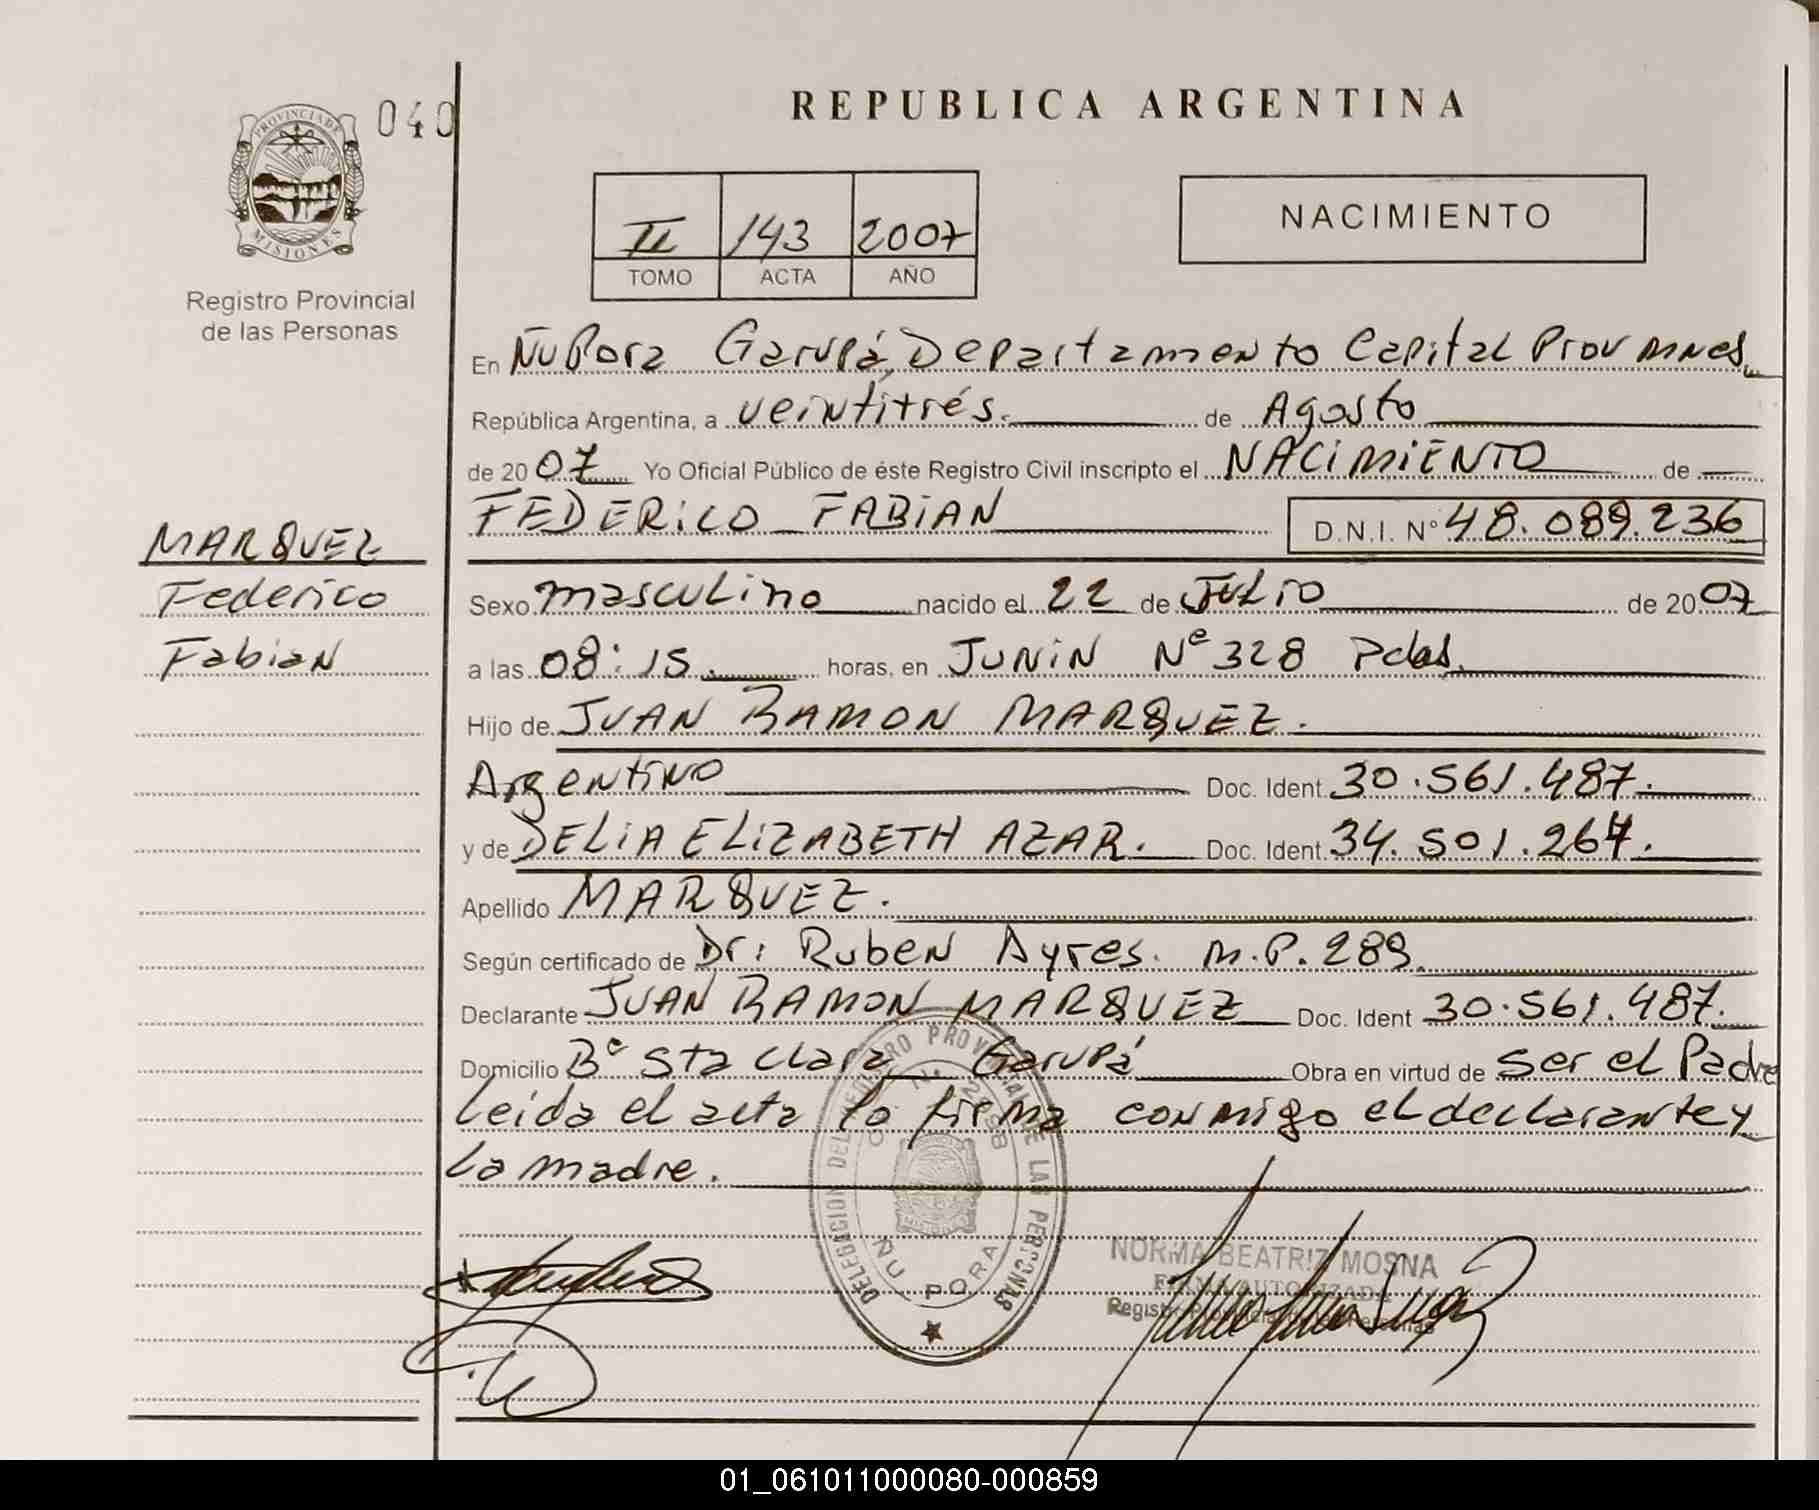 040
PROVINCIA DE
MISIONES
Registro Provincial
de las Personas
REPUBLICA ARGENTINA
II 143 2007
TOMO ACTA AÑO
NACIMIENTO
En Ñu Pora Garupá, Departamento Capital Prov Mnes.
República Argentina, a veintitrés. de Agosto
de 2007 Yo Oficial Público de éste Registro Civil inscripto el NACIMIENTO de
FEDERICO FABIAN D.N.I. N° 48.089.236
MARQUEZ
Federico
Fabian
Sexo masculino nacido el 22 de Julio de 2007
a las 08:15. horas, en JUNIN Nº 328 Pdas.
Hijo de JUAN RAMON MARQUEZ.
Argentino Doc. Ident. 30.561.487.
y de DELIA ELIZABETH AZAR. Doc. Ident. 34.501.267.
Apellido MARQUEZ.
Según certificado de Dr: Ruben Ayres. M.P. 289.
Declarante JUAN RAMON MARQUEZ Doc. Ident 30.561.487.
Domicilio Bº Sta Clara Garupá Obra en virtud de ser el Padre
leida el acta la firma conmigo el declarante y
la madre.
DELEGACION DEL REGISTRO PROVINCIAL DE LAS PERSONAS
ÑU PORA
NORMA BEATRIZ MOSNA
FIRMA AUTORIZADA
Registro Provincial de las Personas
01_061011000080-000859